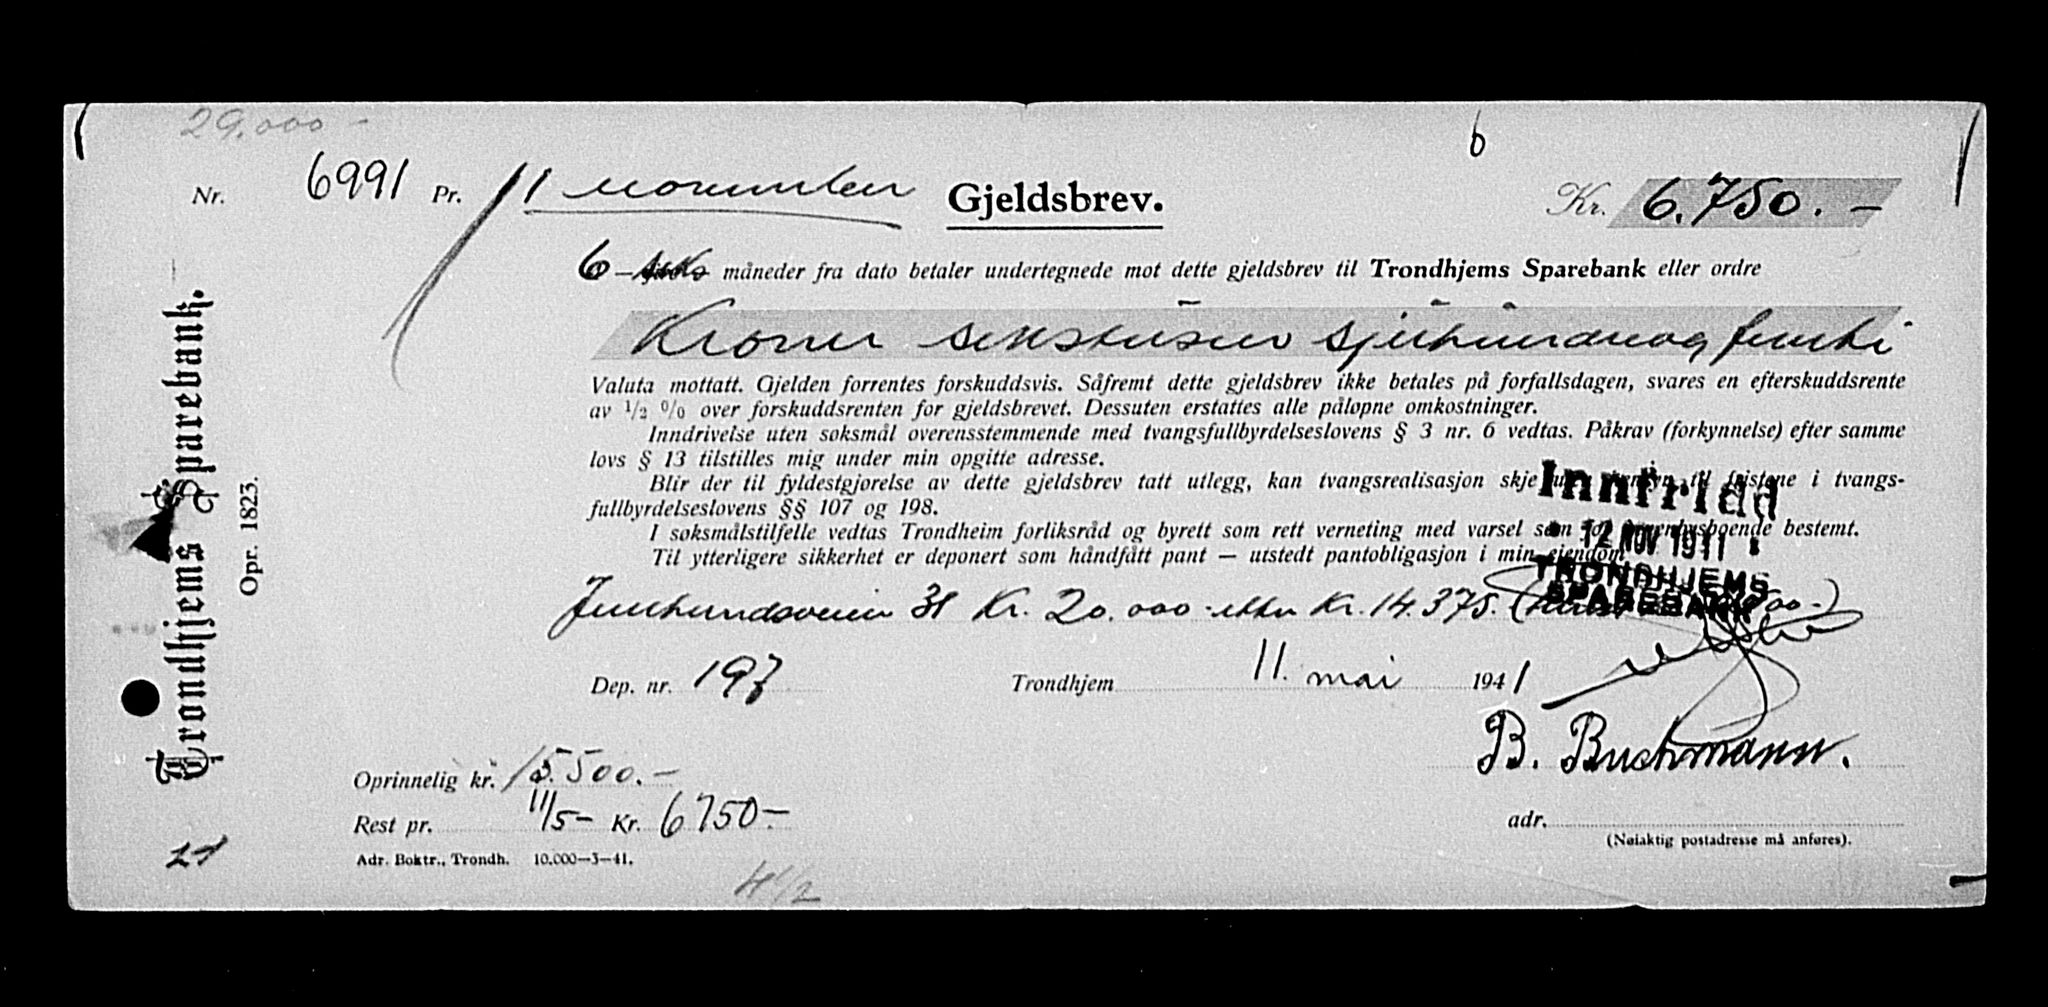 29.000 -
Nr. 6991 Pr. 11 november Gjeldsbrev. Kr. 6.750.-
6 - seks måneder fra dato betaler undertegnede mot dette gjeldsbrev til Trondhjems Sparebank eller ordre
Kroner sekstusen sjuhundreog femti
Valuta mottatt. Gjelden forrentes forskuddsvis. Såfremt dette gjeldsbrev ikke betales på forfallsdagen, svares en efterskuddsrente
av 1/2 % over forskuddsrenten for gjeldsbrevet. Dessuten erstattes alle påløpne omkostninger.
Inndrivelse uten søksmål overensstemmende med tvangsfullbyrdelseslovens § 3 nr. 6 vedtas. Påkrav (forkynnelse) efter samme
lovs § 13 tilstilles mig under min opgitte adresse.
Blir der til fyldestgjørelse av dette gjeldsbrev tatt utlegg, kan tvangsrealisasjon skje uten hensyn til fristene i tvangs-
fullbyrdelseslovens §§ 107 og 198.
I søksmålstilfelle vedtas Trondheim forliksråd og byrett som rett verneting med varsel som for innenbysboende bestemt.
Til ytterligere sikkerhet er deponert som håndfått pant — utstedt pantobligasjon i min eiendom
Innfridd
12 NOV 1941
TRONDHJEMS
SPAREBANK
Jonsvannsveien 31 Kr. 20.000 - etter Kr. 14.375.
Dep. nr. 197 Trondhjem 11. mai 1941
B. Buchmann.
Oprinnelig kr. 15.500.-
Rest pr. 11/5- Kr. 6750-
adr.
(Nøiaktig postadresse må anføres).
Adr. Boktr., Trondh. 10.000—3—41.
4 1/2
Trondhjems Sparebank.
Opr. 1823.